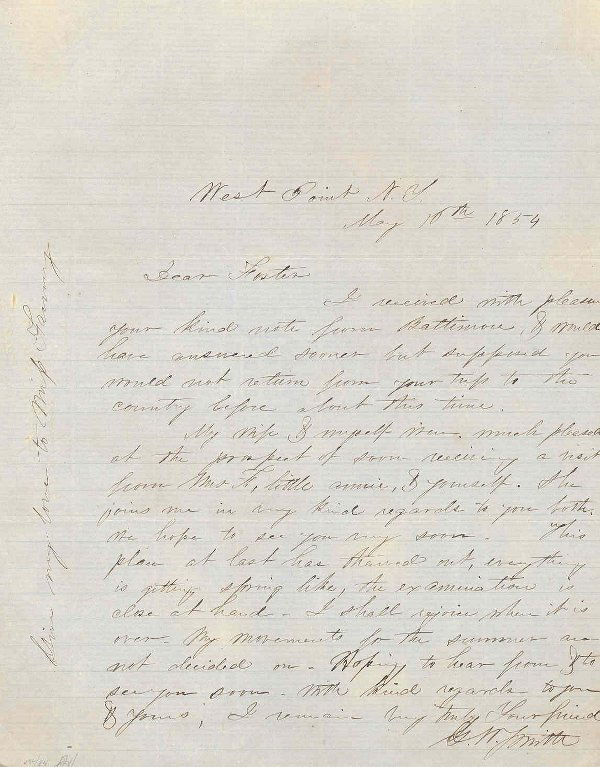 West Point N.Y.
May 10th 1854
Dear Foster
I received with pleasure
your kind note from Baltimore, & would
have answered sooner but supposed you
would not return from your trip to the
country before about this time.
My wife & myself were much pleased
at the prospect of soon receiving a visit
from Mrs F, little annie, & yourself. She
joins me in very kind regards to you both.
We hope to see you very soon. This
place at last has thawed out, everything
is getting spring like, the examination is
close at hand - I shall rejoice when it is
over. My movements for the summer are
not decided on - Hoping to hear from & to
see you soon - With kind regards to you
& yours, I remain very truly Your friend
G. W. Smith
Give my love to Miss Fanny